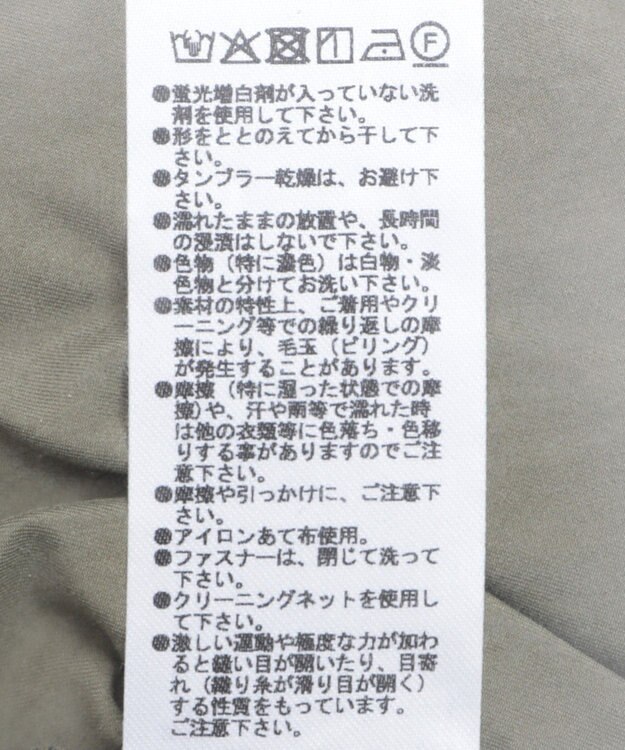 F
●蛍光増白剤が入っていない洗
剤を使用して下さい。
●形をととのえてから干して下
さい。
●タンブラー乾燥は、お避け下
さい。
●濡れたままの放置や、長時間
の浸漬はしないで下さい。
●色物（特に濃色）は白物・淡
色物と分けてお洗い下さい。
●素材の特性上、ご着用やクリ
ーニング等での繰り返しの摩
擦により、毛玉（ピリング）
が発生することがあります。
●摩擦（特に湿った状態での摩
擦）や、汗や雨等で濡れた時
は他の衣類等に色落ち・色移
りする事がありますのでご注
意下さい。
●摩擦や引っかけに、ご注意下
さい。
●アイロンあて布使用。
●ファスナーは、閉じて洗って
下さい。
●クリーニングネットを使用し
て下さい。
●激しい運動や極度な力が加わ
ると縫い目が開いたり、目寄
れ（織り糸が滑り目が開く）
する性質をもっています。
ご注意下さい。